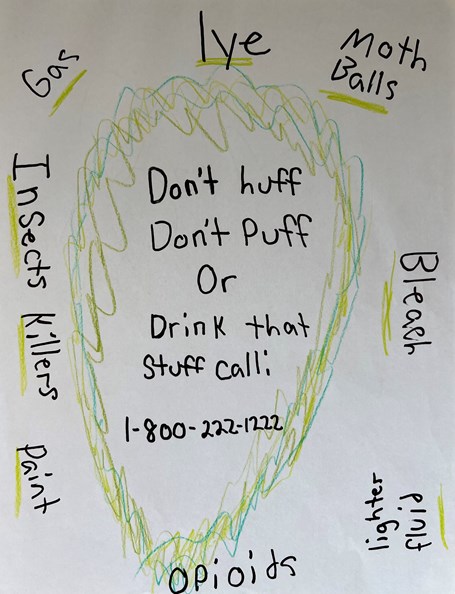 lye
Gas
Moth
Balls
Insects Killers
Paint
Don't huff
Don't Puff
Or
Drink that
Stuff call:
1-800-222-1222
Bleach
lighter
fluid
Opioids